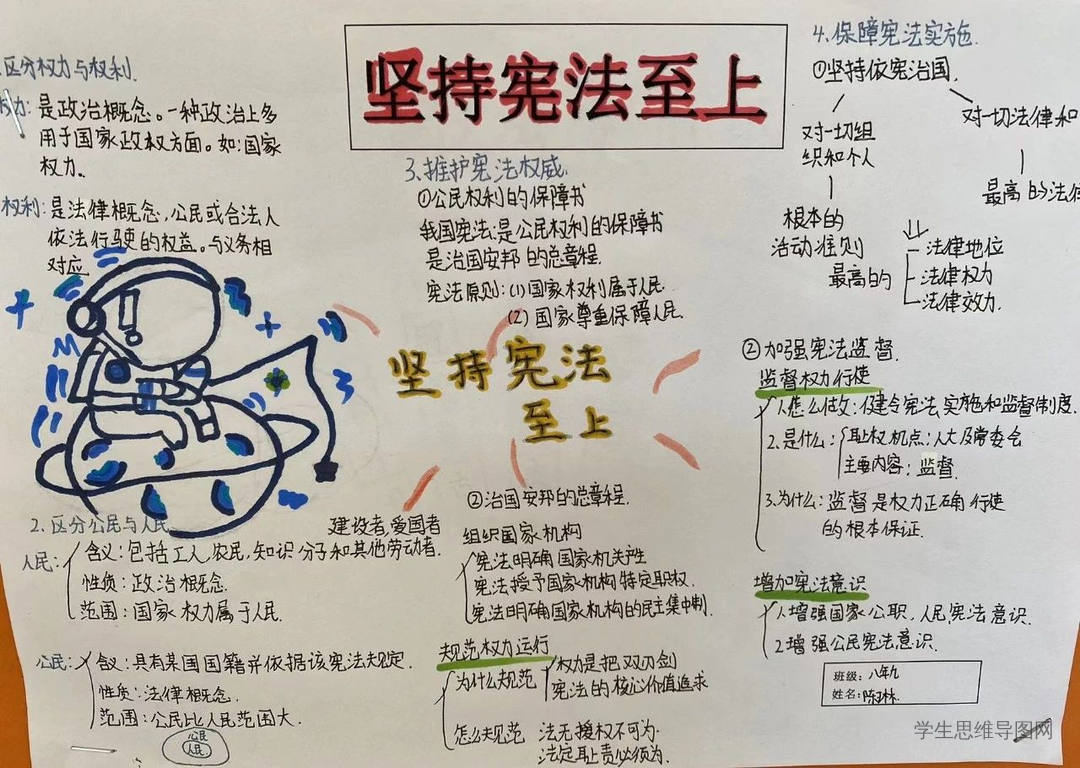 坚持宪法至上
区分权力与权利.
权力: 是政治概念。一种政治上多
用于国家政权方面。如:国家
权力.
权利: 是法律概念,公民或合法人
依法行驶的权益。与义务相
对应
2. 区分公民与人民
建设者,爱国者
人民:
含义: 包括工人,农民,知识分子和其他劳动者.
性质: 政治概念.
范围: 国家权力属于人民.
公民:
含: 具有某国国籍并依据该宪法规定.
性质: 法律概念.
范围: 公民比人民范围大.
公民
人民
3.维护宪法权威.
①公民权利的保障书
我国宪法:是公民权利的保障书
是治国安邦的总章程
宪法原则: (1) 国家权利属于人民
(2) 国家尊重保障人民
坚持宪法
至上
②治国安邦的总章程.
组织国家机构
宪法明确国家机关产生
宪法授予国家机构特定职权.
宪法明确国家机构的民主集中制.
规范权力运行
为什么规范
权力是把双刃剑
宪法的核心价值追求
怎么规范
法无授权不可为
法定职责必须为.
4.保障宪法实施.
①坚持依宪治国.
对一切组
织和个人
根本的
活动准则
对一切法律和
最高的法律
最高的
法律地位
法律权力
法律效力.
②加强宪法监督.
监督权力行使
1.怎么做: 健全宪法实施和监督制度.
2.是什么:
职权机点: 人大及常委会
主要内容: 监督.
3.为什么: 监督是权力正确行使
的根本保证.
增加宪法意识
1.增强国家公职,人民宪法意识.
2增强公民宪法意识.
班级: 八年九
姓名:
学生思维导图网